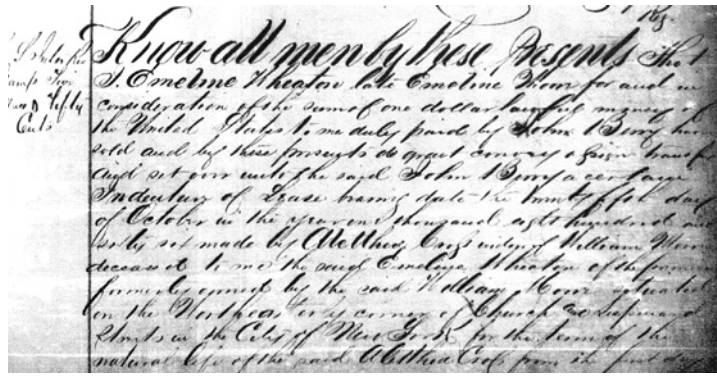 Reg.
U.S. Inter Rev
Stamp Two
Dollars Fifty
Cents
Know all men by these Presents That
I, Emeline Wheaton late Emeline Moon for and in
consideration of the sum of one dollar lawful money of
the United States to me duly paid by John Berry have
sold and by these presents do grant convey assign transfer
and set over unto the said John Berry a certain
Indenture of Lease bearing date the twenty fifth day
of October in the year one thousand eight hundred and
sixty six made by Alethea Cross widow of William
deceased to me the said Emeline Wheaton of the premises
formerly owned by the said William situated
on the Northeasterly corner of Church & Lispenard
Streets in the City of New York for the term of the
natural life of the said Alethea Cross from the first day